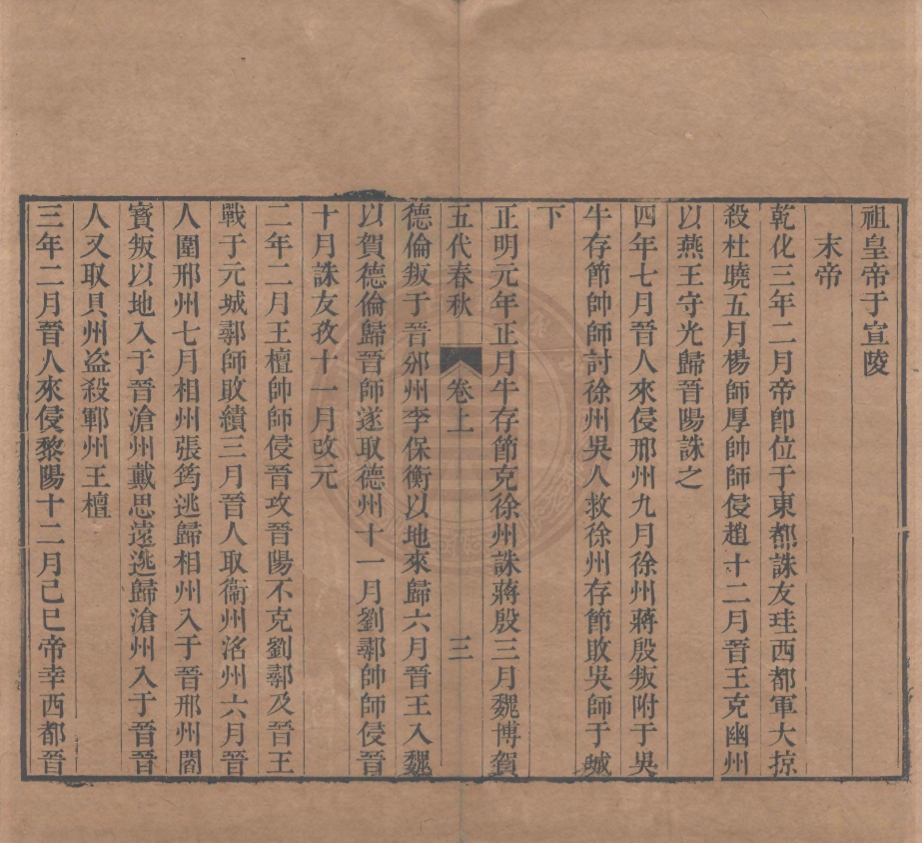 祖皇帝于宣陵
末帝
乾化三年二月帝卽位于東都誅友珪西都軍大掠
殺杜曉五月楊師厚帥師侵趙十二月晉王克幽州
以燕王守光歸晉陽誅之
四年七月晉人來侵邢州九月徐州蔣殷叛附于吳
牛存節帥師討徐州吳人救徐州存節敗吳師于城
下
正明元年正月牛存節克徐州誅蔣殷三月魏博賀
五代春秋 卷上 三
德倫叛于晉邠州李保衡以地來歸六月晉王入魏
以賀德倫歸晉師遂取德州十一月劉鄩帥師侵晉
十月誅友孜十一月改元
二年二月王檀帥師侵晉攻晉陽不克劉鄩及晉王
戰于元城鄩師敗績三月晉人取衞州洺州六月晉
人圍邢州七月相州張筠逃歸相州入于晉邢州閻
寶叛以地入于晉滄州戴思遠逃歸滄州入于晉晉
人又取貝州盗殺鄆州王檀
三年二月晉人來侵黎陽十二月己巳帝幸西都晉